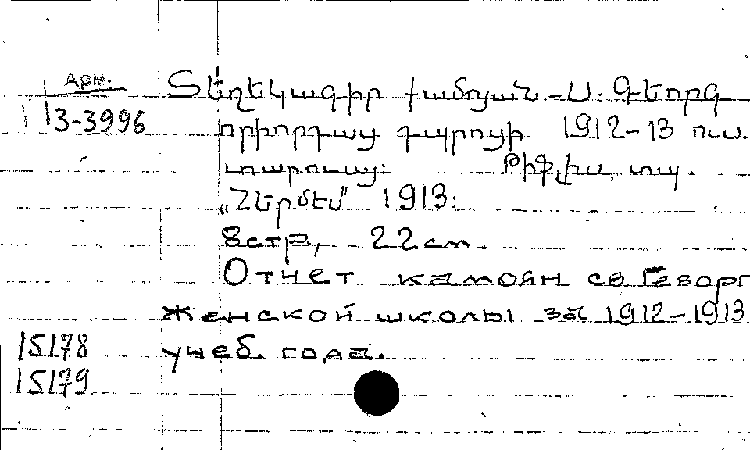 Арм.
13-3996
Տեղեկագիր Քամոյան - Ս. Գէորգ
օրիորդաց դպրոցի 1912-13 ուս.
տարուայ: Թիֆլիս, տպ.
„Հերմէս" 1913:
8стр, 22см.
Отчет камоян св Геворг
женской школы за 1912-1913
учеб. года.
15178
15179